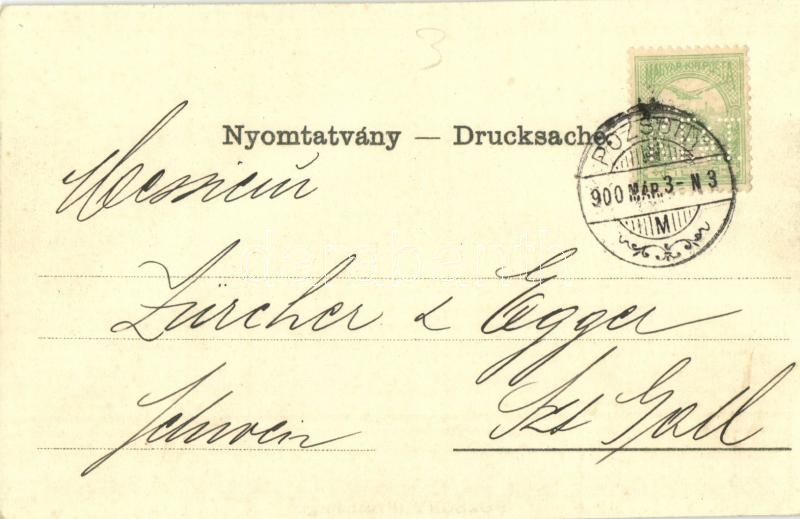 3
MAGYAR KIR. POSTA
Nyomtatvány — Drucksache
POZSONY
900 MÁR. 3 - N 3
M
Messieur
Zürcher & Egger
Schweiz Szt Gall